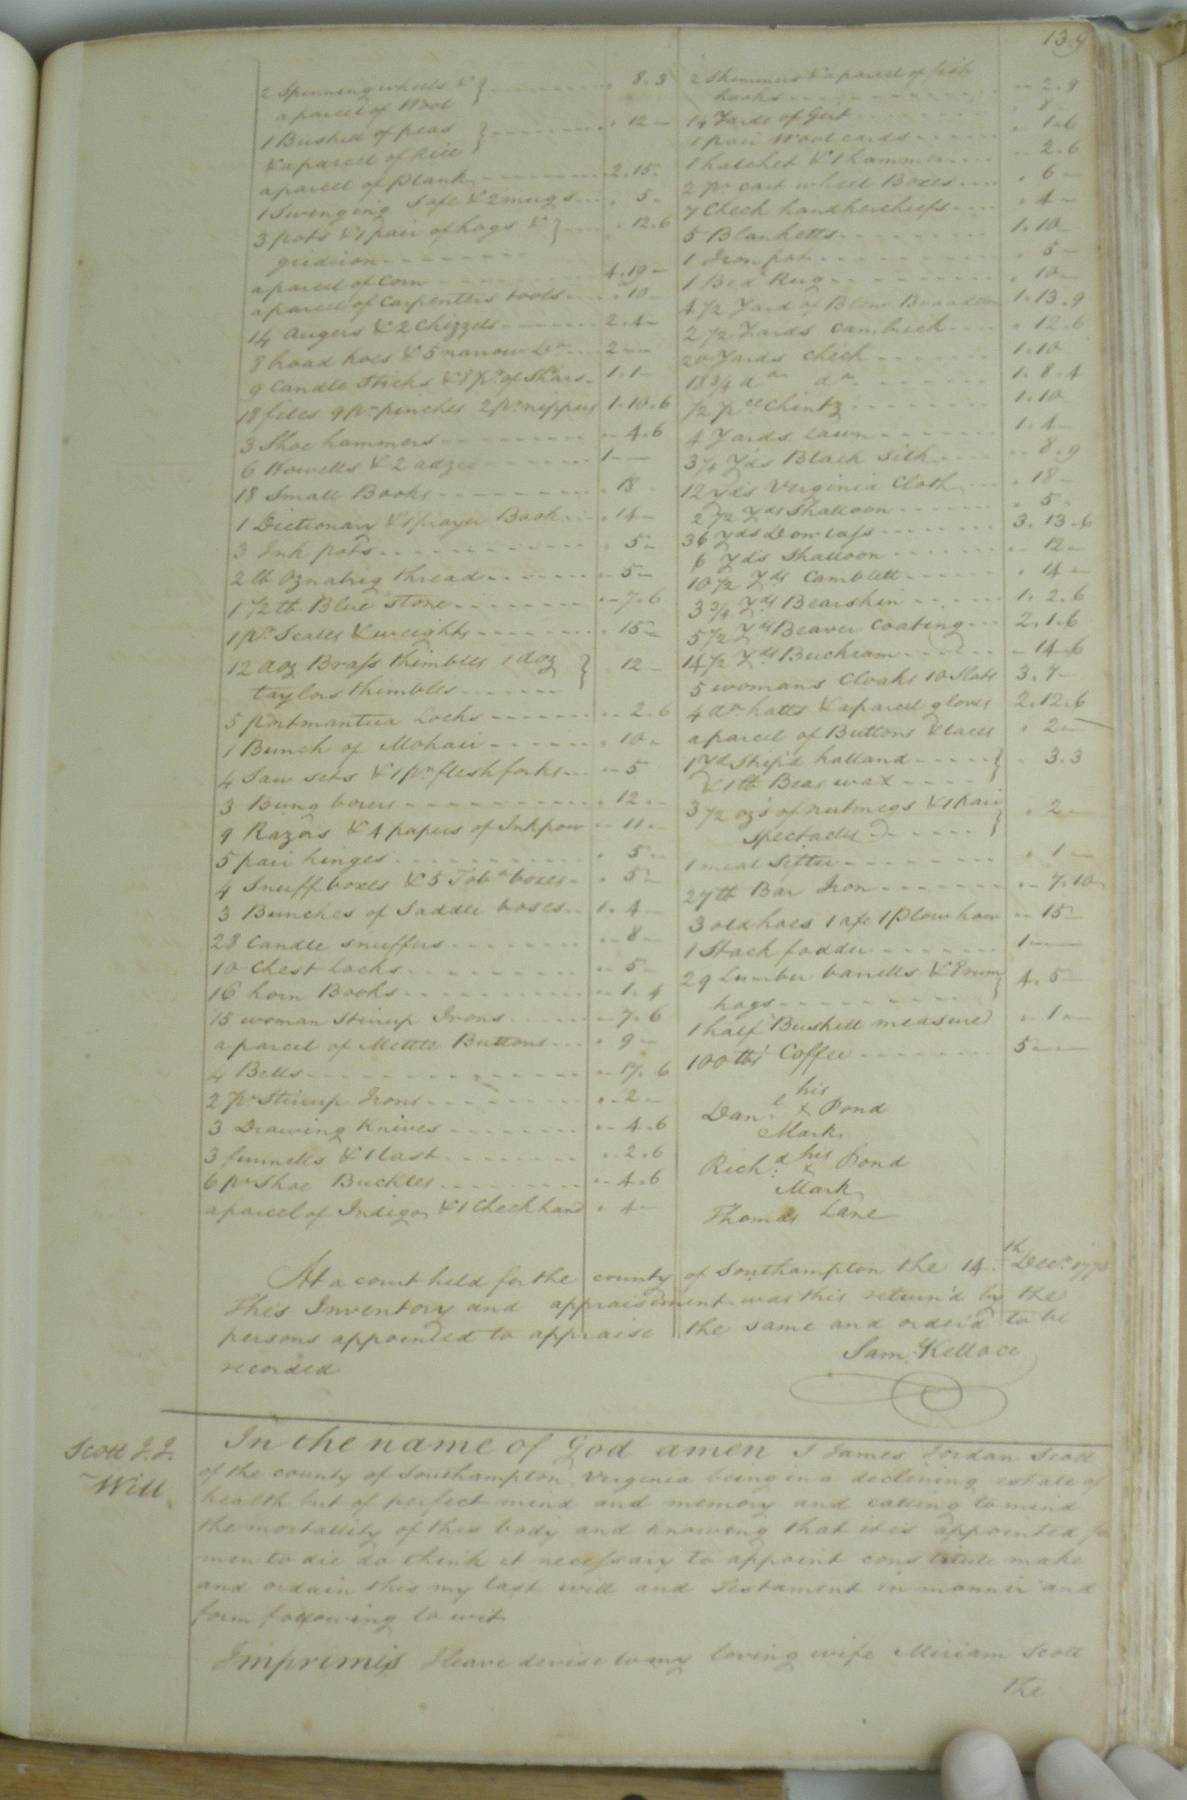 139
2 Spinning wheels & } 8.3
a parcel of Wool
1 Bushell of peas } 12 -
& a parcel of Rice
a parcel of plank 2.15.
1 Swinging Safe & 2 mugs 5 -
3 pots & 1 pair of hogs & } 12.6
gridiron
a parcel of Corn 4.19 -
a parcel of Carpenters tools 10 -
14 Augers & 2 Chizzels 2.4 -
8 hoad hoes & 5 narrow Do 2 - -
9 Candle Sticks & 8 pr of Shars 1.1 -
18 files 9 pr pinches 2 pr nippers 1.10.6
3 Shoe hammers 4.6
6 Howells & 2 adzes 1 - -
18 Small Books 18
1 Dictionary & 1 prayer Book 14 -
3 Ink pots 5 -
2 lb Oznabrig thread 5 -
1 1/2 lb Blue Stone 7.6
1 pr Scales & weights 15 -
12 doz Brass thimbles 1 doz } 12 -
taylors thimbles
5 portmantua Locks 2.6
1 Bunch of Mohair 10 -
4 Saw sets & 1 pr flesh forks 5
3 Bung borers 12 -
9 Razors & 4 papers of Inkpow 11 -
5 pair hinges 5 -
4 Snuff boxes & 5 Tobo boxes 5 -
3 Bunches of Saddle boses 1.4 -
28 Candle snuffers 8 -
10 Chest Locks 5 -
16 horn Books 1.4
15 woman Stirrup Irons 7.6
a parcel of Mettle Buttons 9 -
4 Bells 17.6
2 pr Stirrup Irons 2 -
3 Drawing Knives 4.6
3 funnells & 1 last 2.6
6 pr Shoe Buckles 4.6
a parcel of Indigo & 1 Check hand 4 -
2 Skimmers & a parcel of fish
hooks 2.9
14 Yards of Girt 8 -
1 pair Wool cards 1.6
1 hatchet & 1 hammer 2.6
2 pr cart wheel Boxes 6 -
7 Check handkercheifs 4 -
5 Blanketts 1.10
1 Iron pot 5 -
1 Bed Rug 10 -
4 1/2 Yard of Blew 1.13.9
2 1/2 Yards cambrick 12.6
20 Yards check 1.10
18 3/4 do do 1.8.4
1/2 pce Chintz 1.10
4 Yards Lawn 1.4 -
3 1/4 Yds Black Silk 8.9
12 yds Virginia Cloth 18 -
2 1/2 yds Shalloon 5 -
36 yds Dowlass 3.13.6
6 Yds Shalloon 12 -
10 1/2 Yds Camblett 14 -
3 3/4 Yds Bearskin 1.2.6
5 1/2 Yds Beaver Coating 2.1.6
14 1/2 Yds Buckram 14.6
5 womans Cloaks 10 Slats 3.7 -
4 do hatts & a parcel gloves 2.12.6
a parcel of Buttons & laces 2 -
1 Yd Strip'd holland } 3.3
& 1 lb Bees wax
3 1/2 oz's of nutmegs & 1 pair } 2 -
Spectacles
1 meal Sifter 1 -
27 lb Bar Iron 7.10
3 old hoes 1 axe 1 plow how 15 -
1 Stack fodder 1 - -
29 Lumber barrells & 8 rum } 4.5 -
hogs
1 half Bushell measure 1 -
100 lbs Coffee 5 - -
his
Danl. x Pond
Mark
his
Richd. x Pond
Mark
Thomas Lane
At a court held for the county of Southampton the 14th. Decr.
This Inventory and appraisement was this return'd by the
persons appointed to appraise the same and order'd to be
recorded
Sam. Kelloce
Scott J. J.
Will
In the name of God amen I James Jordan Scott
of the county of Southampton Virginia being in a declining estate of
health but of perfect mind and memory and calling to mind
the mortallity of this body and knowing that it is appointed for
men to die do think it necessary to appoint constitute make
and ordain this my last will and Testament in manner and
form following to wit
Imprimis I leave devise to my loving wife Miriam Scott
The